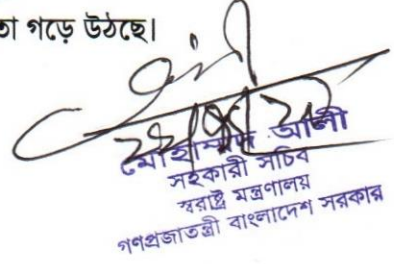 তা গড়ে উঠছে।
মোহাম্মদ আলী
সহকারী সচিব
স্বরাষ্ট্র মন্ত্রণালয়
গণপ্রজাতন্ত্রী বাংলাদেশ সরকার